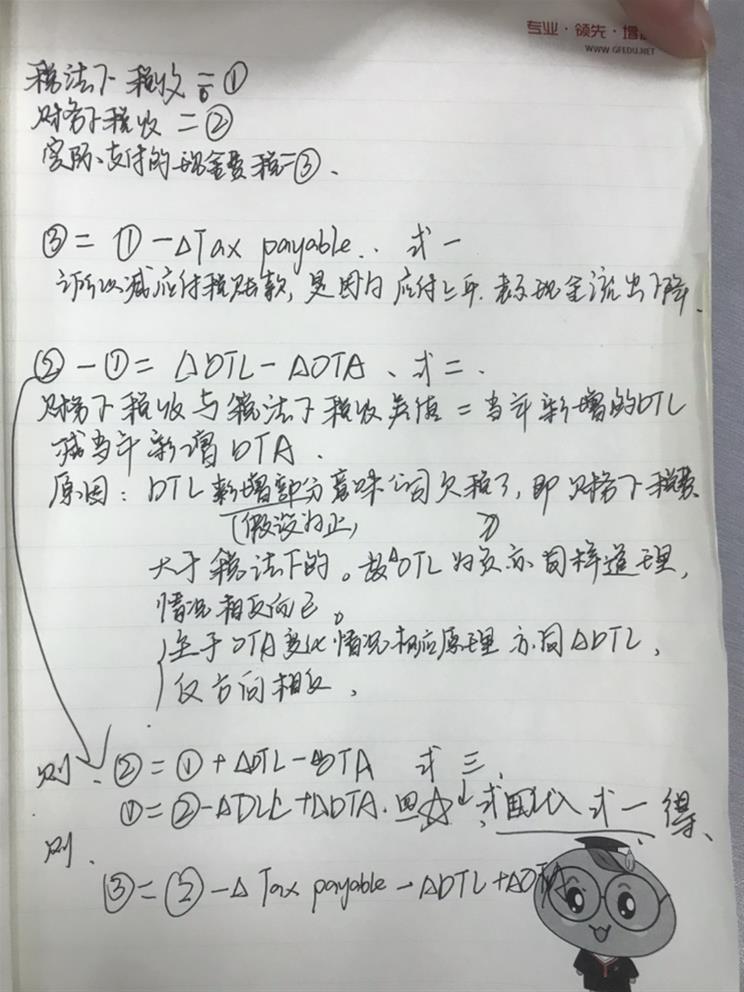 专业·领先·增
WWW.GFEDU.NET
税法下税收=①
财务下税收=②
实际支付的现金费税=③.
③=①-ΔTax payable.. 式一
之所以减应付税账款,是因为应付上升.表示现金流出下降.
②-①=ΔDTL-ΔDTA、式二.
财务下税收与税法下税收差值=当年新增的DTL
减当年新增DTA.
原因:DTL新增部分意味公司欠税了,即财务下税费
(假设为正)
大于税法下的。故ΔDTL为负亦同样道理,
情况相反而已。
至于DTA变化情况相应原理亦同ΔDTL,
仅方向相反.
则.②=①+ΔDTL-ΔDTA 式三.
①=②-ΔDLL+ΔDTA.四☆ 式四代入式一得、
则.
③=②-ΔTax payable-ΔDTL+ΔDTA